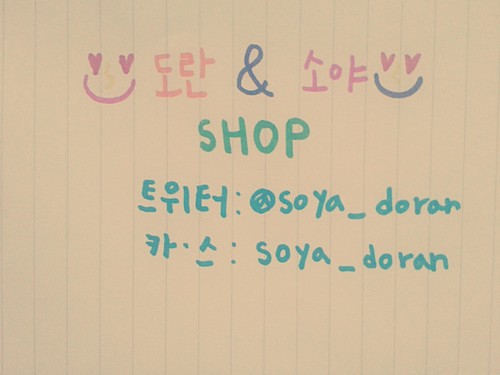 도란 & 소야
SHOP
트위터: @soya_doran
카·스: soya_doran